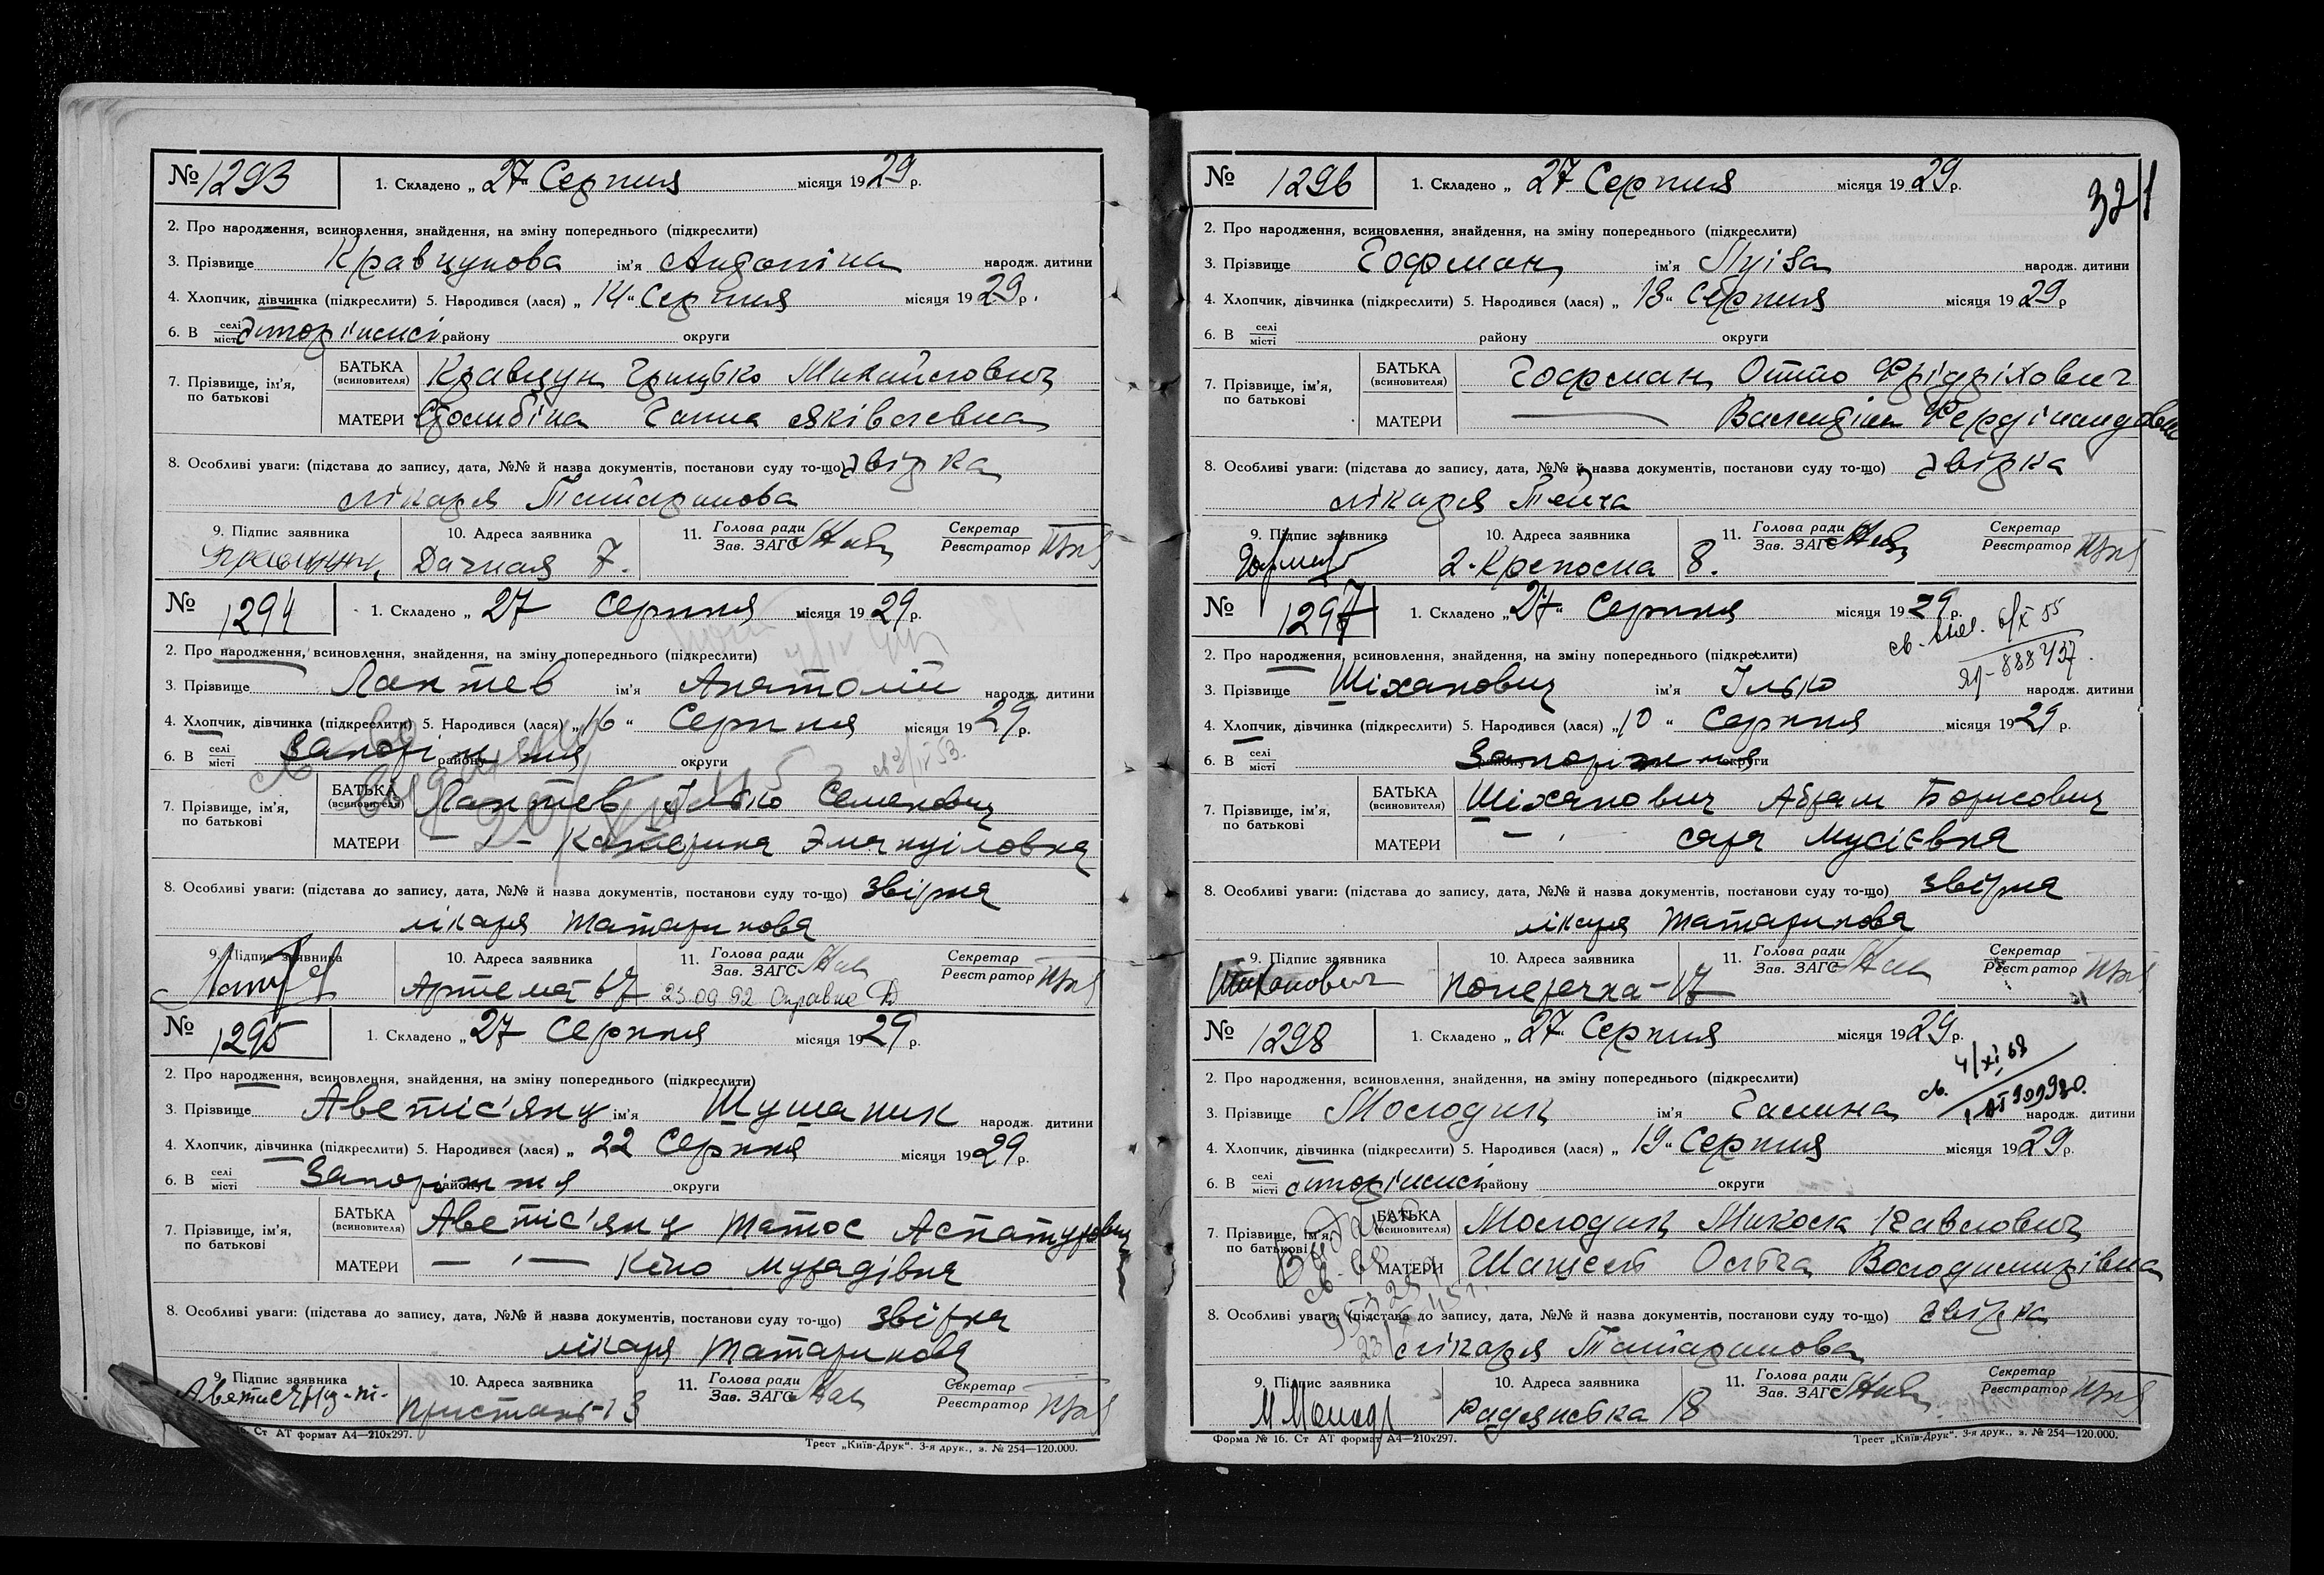 № 1293 1. Складено „ 27 “ Серпня місяця 1929 р.
2. Про народження, всиновлення, знайдення, на зміну попереднього (підкреслити)
3. Прізвище Кравцунова ім'я Антоніна народж. дитини
4. Хлопчик, дівчинка (підкреслити) 5. Народився (лася) „ 14 “ Серпня місяця 1929 р.
6. В селі місті Запоріжжі району округи
7. Прізвище, ім'я, по батькові
БАТЬКА (всиновителя) Кравцун Грицько Михайлович
МАТЕРИ Ганна Яківлевна
8. Особливі уваги: (підстава до запису, дата, №№ й назва документів, постанови суду то-що) звірка
лікаря Татаринова
9. Підпис заявника 10. Адреса заявника 11. Голова ради Зав. ЗАГС Секретар Реєстратор
Дачная 7.
№ 1294 1. Складено „ 27 Серпня місяця 1929 р.
2. Про народження, всиновлення, знайдення, на зміну попереднього (підкреслити)
3. Прізвище Лаптев ім'я Анатолій народж. дитини
4. Хлопчик, дівчинка (підкреслити) 5. Народився (лася) „ 16 “ Серпня місяця 1929 р.
6. В селі місті Запоріжжя району округи
св 2/IV 53.
7. Прізвище, ім'я, по батькові
БАТЬКА (всиновителя) Лаптев Ілько Семенович
МАТЕРИ — „ — Катерина Эмануіловна
8. Особливі уваги: (підстава до запису, дата, №№ й назва документів, постанови суду то-що) звірка
лікаря Татаринова
9. Підпис заявника 10. Адреса заявника 11. Голова ради Зав. ЗАГС Секретар Реєстратор
Артема 67 23.09.92 Справка
№ 1295 1. Складено „ 27 Серпня місяця 1929 р.
2. Про народження, всиновлення, знайдення, на зміну попереднього (підкреслити)
3. Прізвище Аветіс'янц ім'я Шушаник народж. дитини
4. Хлопчик, дівчинка (підкреслити) 5. Народився (лася) „ 22 Серпня місяця 1929 р.
6. В селі місті Запоріжжя району округи
7. Прізвище, ім'я, по батькові
БАТЬКА (всиновителя) Аветіс'янц Татос Аспатурович
МАТЕРИ — „ — Кіно Мурадівна
8. Особливі уваги: (підстава до запису, дата, №№ й назва документів, постанови суду то-що) звірка
лікаря Татаринова
9. Підпис заявника 10. Адреса заявника 11. Голова ради Зав. ЗАГС Секретар Реєстратор
Аветисянц-т- Пристань-13
16. Ст АТ формат А4—210х297. Трест „Київ-Друк“. 3-я друк., з. № 254—120.000.
321
№ 1296 1. Складено „ 27 Серпня місяця 1929 р.
2. Про народження, всиновлення, знайдення, на зміну попереднього (підкреслити)
3. Прізвище Гофман ім'я Луіза народж. дитини
4. Хлопчик, дівчинка (підкреслити) 5. Народився (лася) „ 13 “ Серпня місяця 1929 р
6. В селі місті району округи
7. Прізвище, ім'я, по батькові
БАТЬКА (всиновителя) Гофман Отто Фрідріхович
МАТЕРИ — Фердінандовна
8. Особливі уваги: (підстава до запису, дата, №№ й назва документів, постанови суду то-що) звірка
лікаря
9. Підпис заявника 10. Адреса заявника 11. Голова ради Зав. ЗАГС Секретар Реєстратор
2-Крепосна 8.
№ 1297 1. Складено „ 27 “ Серпня місяця 1929 р.
6/X 55
888437
2. Про народження, всиновлення, знайдення, на зміну попереднього (підкреслити)
3. Прізвище Шіханович ім'я Ілько народж. дитини
4. Хлопчик, дівчинка (підкреслити) 5. Народився (лася) „ 10 “ Серпня місяця 1929 р.
6. В селі місті Запоріжжя району округи
7. Прізвище, ім'я, по батькові
БАТЬКА (всиновителя) Шіханович Абрам Борисович
МАТЕРИ — „ — Сара Мусієвна
8. Особливі уваги: (підстава до запису, дата, №№ й назва документів, постанови суду то-що) звірка
лікаря Татаринова
9. Підпис заявника 10. Адреса заявника 11. Голова ради Зав. ЗАГС Секретар Реєстратор
Шиханович Поперечна-17
№ 1298 1. Складено „ 27 “ Серпня місяця 1929 р.
2. Про народження, всиновлення, знайдення, на зміну попереднього (підкреслити)
3. Прізвище Молодик ім'я Галина народж. дитини
4. Хлопчик, дівчинка (підкреслити) 5. Народився (лася) „ 19 “ Серпня місяця 1929 р.
6. В селі місті Запоріжжі району округи
7. Прізвище, ім'я, по батькові
БАТЬКА (всиновителя) Молодик Микола Павлович
МАТЕРИ Ольга Володимирівна
8. Особливі уваги: (підстава до запису, дата, №№ й назва документів, постанови суду то-що) звірка
лікаря Татаринова
9. Підпис заявника 10. Адреса заявника 11. Голова ради Зав. ЗАГС Секретар Реєстратор
Радянська 18
Форма № 16. Ст АТ формат А4—210х297. Трест „Київ-Друк“. 3-я друк., з. № 254—120.000.